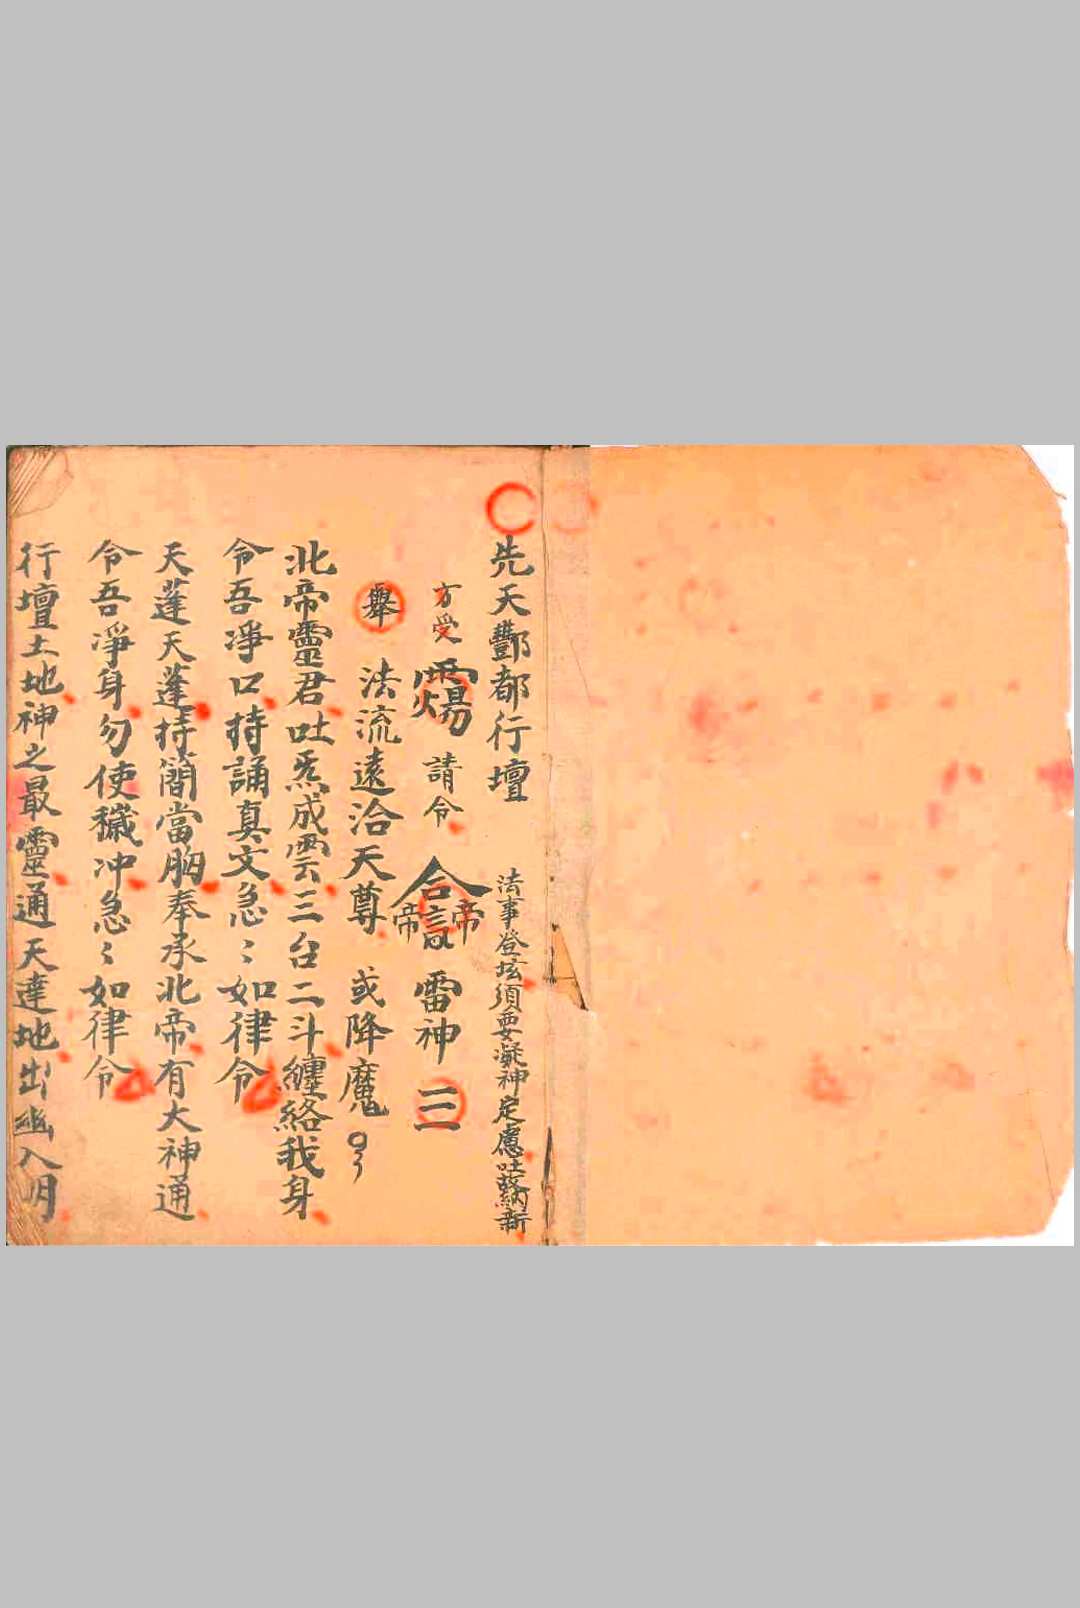 先天酆都行壇 法事登坛須要凝神定慮吐納新
方受 請令 雷神
舉 法流遠洽天尊 或降魔
北帝靈君吐炁成雲三台二斗纏絡我身
令吾淨口持誦真文急〻如律令
天蓬天蓬持簡當胸奉承北帝有大神通
令吾淨身勿使穢冲急〻如律令
行壇土地神之最靈通天達地出幽入明